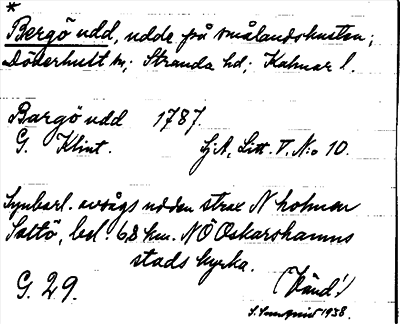 *
Bergö udd, udde på smålandskusten;
Döderhult sn; Stranda hd; Kalmar l.
Bargö udd 1787.
G. Klint. Sj.A, Litt. V. N:o 10.
Synbarl. avsågs udden strax N holmen
Saltö, bel. 6,8 km. NÖ Oskarshamns
stads kyrka.
G. 29. (Vänd!)
1938.